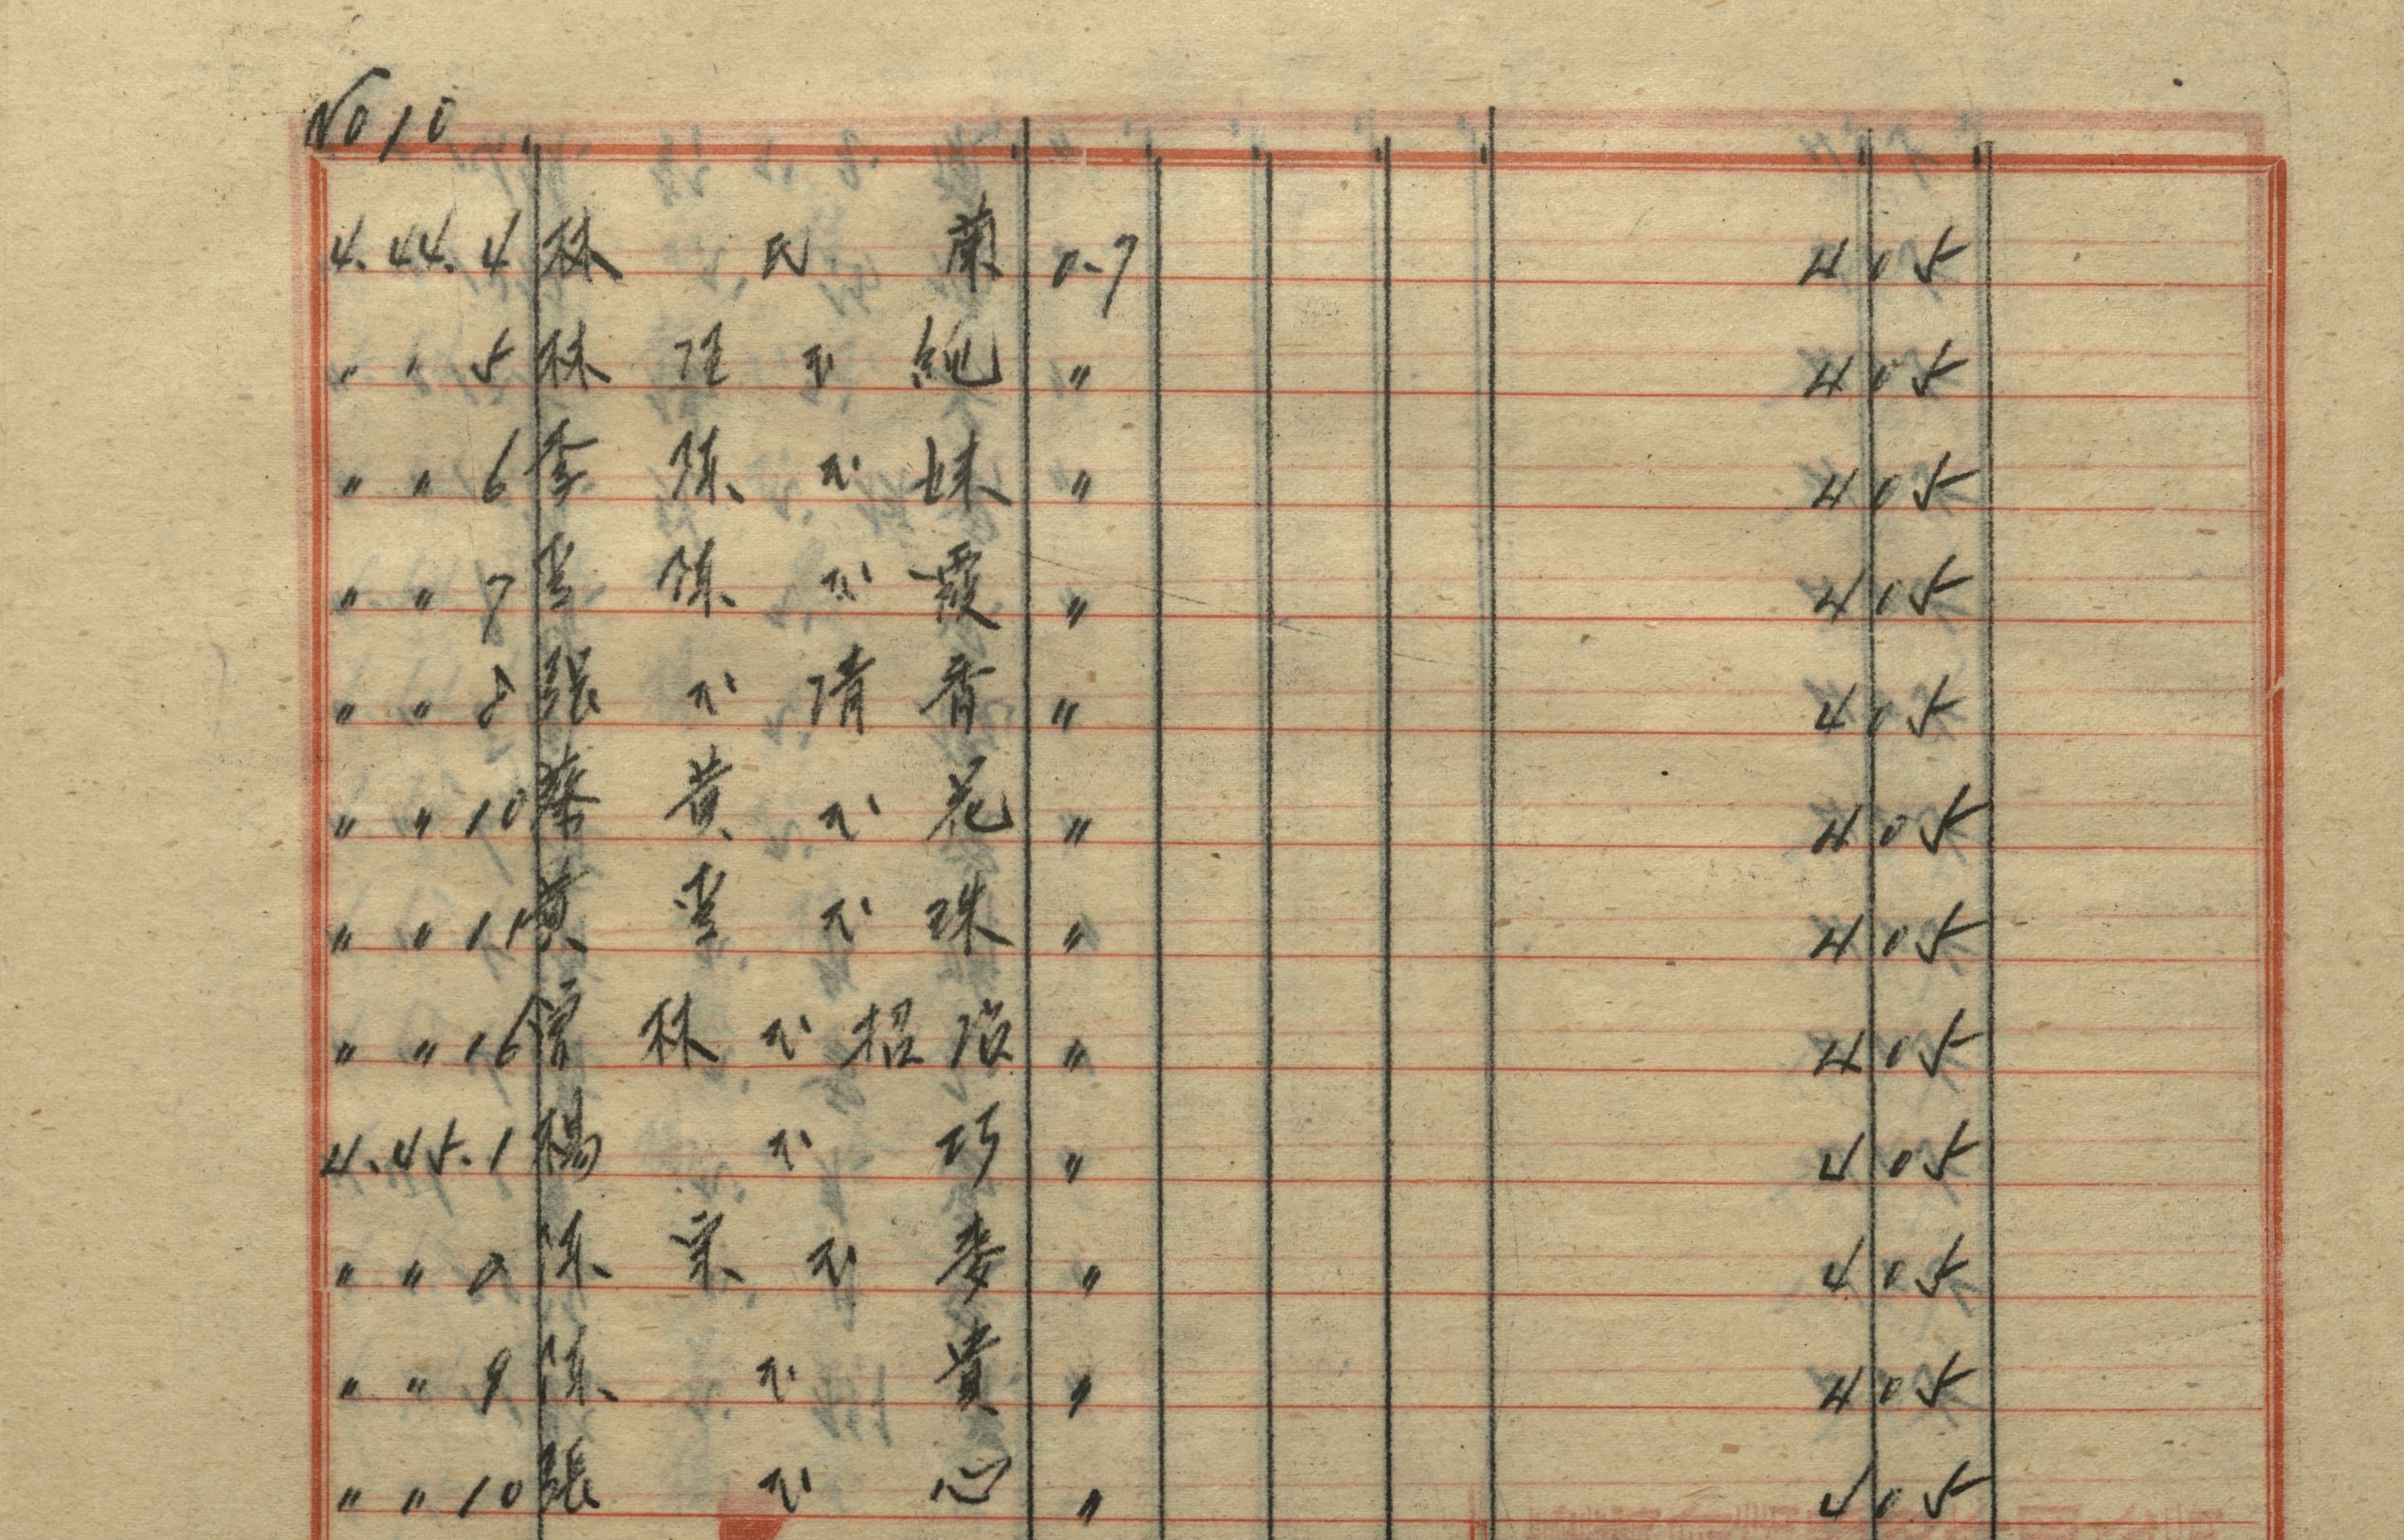 No 10
4.44.4 林 氏 蘭 0.7 405
〃 〃 5 林 氏 純 〃 405
〃 〃 6 李 陳 氏 妹 〃 405
〃 〃 7 李 陳 氏 霞 〃 405
〃 〃 8 張 氏 清 香 〃 405
〃 〃 10 蔡 黄 氏 花 〃 405
〃 〃 11 黄 李 氏 珠 〃 405
〃 〃 16 曾 林 氏 招 治 〃 405
4.45.1 楊 氏 巧 〃 405
〃 〃 陳 宋 氏 麥 〃 405
〃 〃 9 陳 氏 貴 〃 405
〃 〃 10 張 氏 心 〃 405